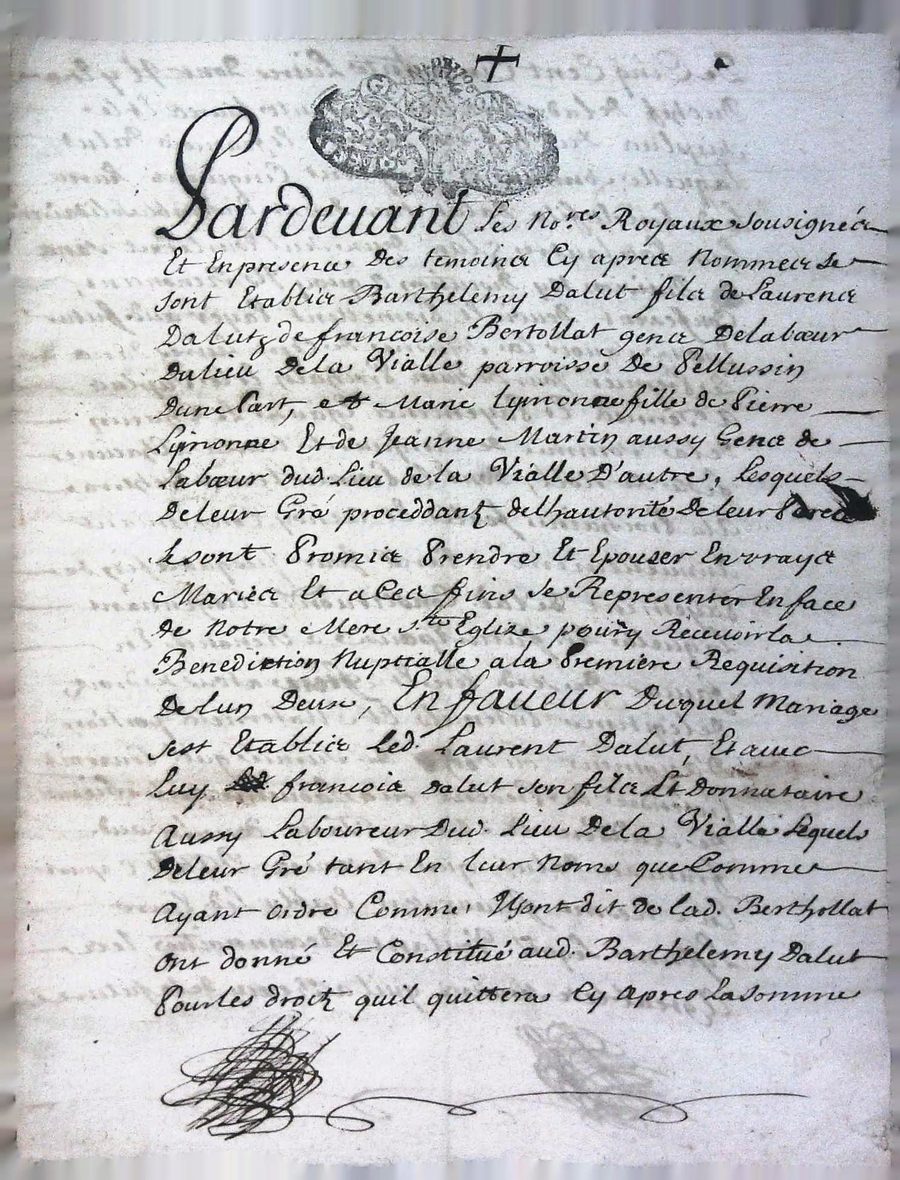 Pardevant Les No.res Royaux sousignés
Et Enpresence Des temoins Cy apres Nommes se
sont Etablis Barthelemy Dalut fils de Laurens
Dalut & de francoise Bertollat gens Delabœur
Du lieu Dela Vialle parroisse De Pellussin
Dune Part, et Marie Lymonne fille de Pierre
Lymonne Et de Jeanne Martin aussy Gens de
Labœur dud. Lieu de la Vialle D'autre, Lesquels
Deleur Gré proceddant delhautorité Deleur Peres
se sont Promis Prendre Et Epouser En vrays
Maries Et a Ces fins se Representer En face
de Notre Mere Ste Eglize pour y Recevoir la
Benediction Nuptialle a la Premiere Requisition
De lun Deux, En faveur Duquel Mariage
sest Etablis Led. Laurent Dalut, Et avec
Luy francois dalut son fils Et Donnataire
Aussy Laboureur Dud. Lieu De la Vialle Lequels
Deleur Gré tant En leur Noms que Comme
Ayant ordre Comme Ils ont dit de lad. Berthollat
ont donné Et Constitué aud. Barthelemy Dalut
Pour les droitz quil quittera Cy apres La somme